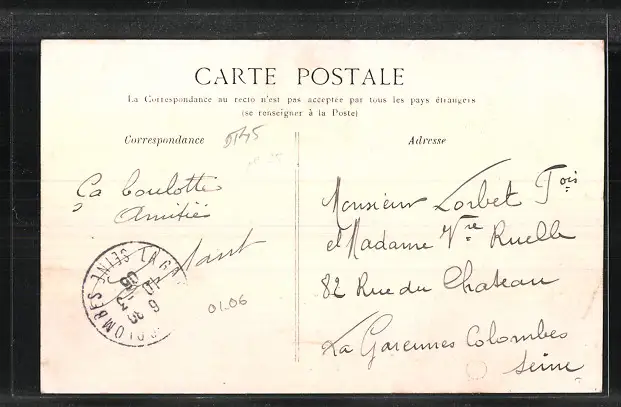 CARTE POSTALE
La Correspondance au recto n'est pas acceptée par tous les pays étrangers
(se renseigner à la Poste)
Correspondance
Adresse
Ça boulotte
Amitiés
01.06
Monsieur Lorbet Fois
et Madame Vve Ruelle
82 Rue du Chateau
La Garennes Colombes
Seine
LA GA
COLOMBES SEINE